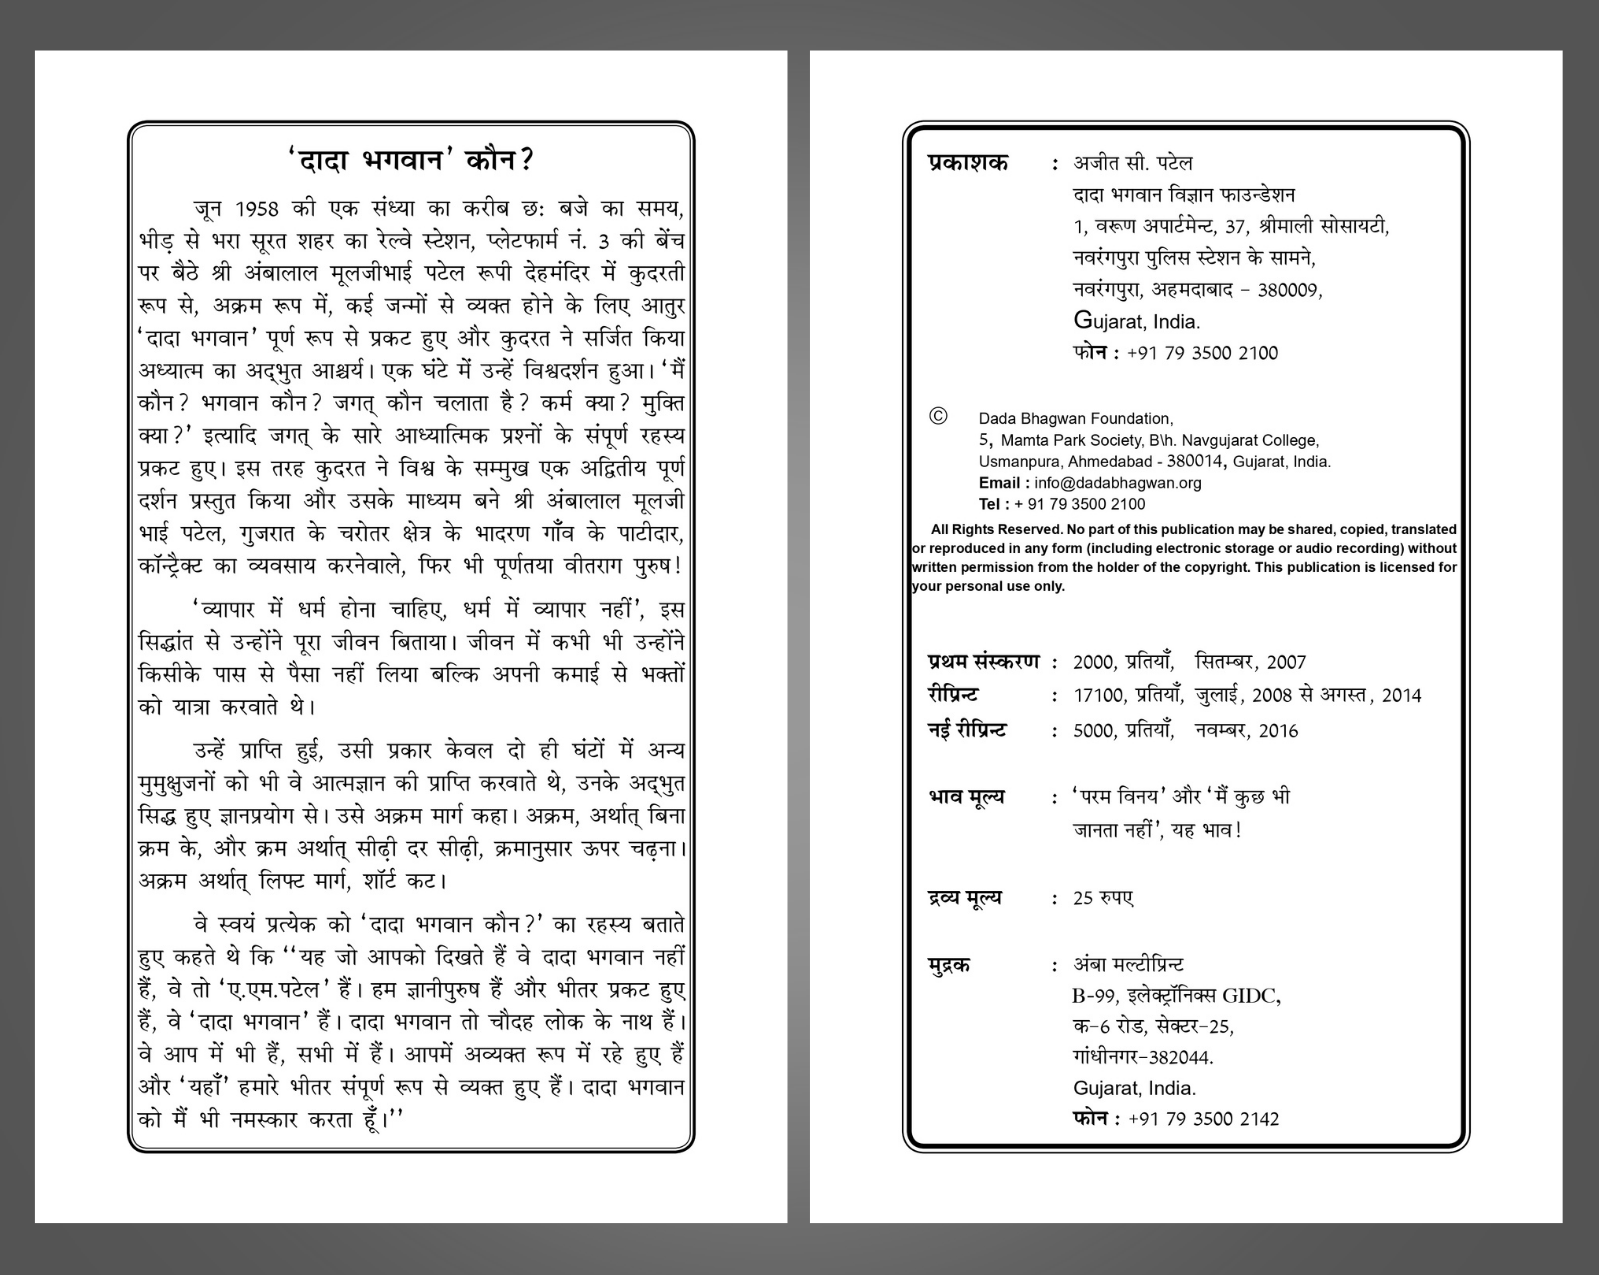 ‘दादा भगवान’ कौन?
जून 1958 की एक संध्या का करीब छः बजे का समय,
भीड़ से भरा सूरत शहर का रेल्वे स्टेशन, प्लेटफार्म नं. 3 की बेंच
पर बैठे श्री अंबालाल मूलजीभाई पटेल रूपी देहमंदिर में कुदरती
रूप से, अक्रम रूप में, कई जन्मों से व्यक्त होने के लिए आतुर
‘दादा भगवान’ पूर्ण रूप से प्रकट हुए और कुदरत ने सर्जित किया
अध्यात्म का अद्भुत आश्चर्य। एक घंटे में उन्हें विश्वदर्शन हुआ। ‘मैं
कौन? भगवान कौन? जगत् कौन चलाता है? कर्म क्या? मुक्ति
क्या?’ इत्यादि जगत् के सारे आध्यात्मिक प्रश्नों के संपूर्ण रहस्य
प्रकट हुए। इस तरह कुदरत ने विश्व के सम्मुख एक अद्वितीय पूर्ण
दर्शन प्रस्तुत किया और उसके माध्यम बने श्री अंबालाल मूलजी
भाई पटेल, गुजरात के चरोतर क्षेत्र के भादरण गाँव के पाटीदार,
कॉन्ट्रैक्ट का व्यवसाय करनेवाले, फिर भी पूर्णतया वीतराग पुरुष!
‘व्यापार में धर्म होना चाहिए, धर्म में व्यापार नहीं’, इस
सिद्धांत से उन्होंने पूरा जीवन बिताया। जीवन में कभी भी उन्होंने
किसीके पास से पैसा नहीं लिया बल्कि अपनी कमाई से भक्तों
को यात्रा करवाते थे।
उन्हें प्राप्ति हुई, उसी प्रकार केवल दो ही घंटों में अन्य
मुमुक्षुजनों को भी वे आत्मज्ञान की प्राप्ति करवाते थे, उनके अद्भुत
सिद्ध हुए ज्ञानप्रयोग से। उसे अक्रम मार्ग कहा। अक्रम, अर्थात् बिना
क्रम के, और क्रम अर्थात् सीढ़ी दर सीढ़ी, क्रमानुसार ऊपर चढ़ना।
अक्रम अर्थात् लिफ्ट मार्ग, शॉर्ट कट।
वे स्वयं प्रत्येक को ‘दादा भगवान कौन?’ का रहस्य बताते
हुए कहते थे कि ‘‘यह जो आपको दिखते हैं वे दादा भगवान नहीं
हैं, वे तो ‘ए.एम.पटेल’ हैं। हम ज्ञानीपुरुष हैं और भीतर प्रकट हुए
हैं, वे ‘दादा भगवान’ हैं। दादा भगवान तो चौदह लोक के नाथ हैं।
वे आप में भी हैं, सभी में हैं। आपमें अव्यक्त रूप में रहे हुए हैं
और ‘यहाँ’ हमारे भीतर संपूर्ण रूप से व्यक्त हुए हैं। दादा भगवान
को मैं भी नमस्कार करता हूँ।’’
प्रकाशक : अजीत सी. पटेल
दादा भगवान विज्ञान फाउन्डेशन
1, वरूण अपार्टमेन्ट, 37, श्रीमाली सोसायटी,
नवरंगपुरा पुलिस स्टेशन के सामने,
नवरंगपुरा, अहमदाबाद - 380009,
Gujarat, India.
फोन : +91 79 3500 2100
© Dada Bhagwan Foundation,
5, Mamta Park Society, B\h. Navgujarat College,
Usmanpura, Ahmedabad - 380014, Gujarat, India.
Email : info@dadabhagwan.org
Tel : + 91 79 3500 2100
All Rights Reserved. No part of this publication may be shared, copied, translated
or reproduced in any form (including electronic storage or audio recording) without
written permission from the holder of the copyright. This publication is licensed for
your personal use only.
प्रथम संस्करण : 2000, प्रतियाँ, सितम्बर, 2007
रीप्रिन्ट : 17100, प्रतियाँ, जुलाई, 2008 से अगस्त, 2014
नई रीप्रिन्ट : 5000, प्रतियाँ, नवम्बर, 2016
भाव मूल्य : ‘परम विनय’ और ‘मैं कुछ भी
जानता नहीं’, यह भाव!
द्रव्य मूल्य : 25 रुपए
मुद्रक : अंबा मल्टीप्रिन्ट
B-99, इलेक्ट्रॉनिक्स GIDC,
क-6 रोड, सेक्टर-25,
गांधीनगर-382044.
Gujarat, India.
फोन : +91 79 3500 2142